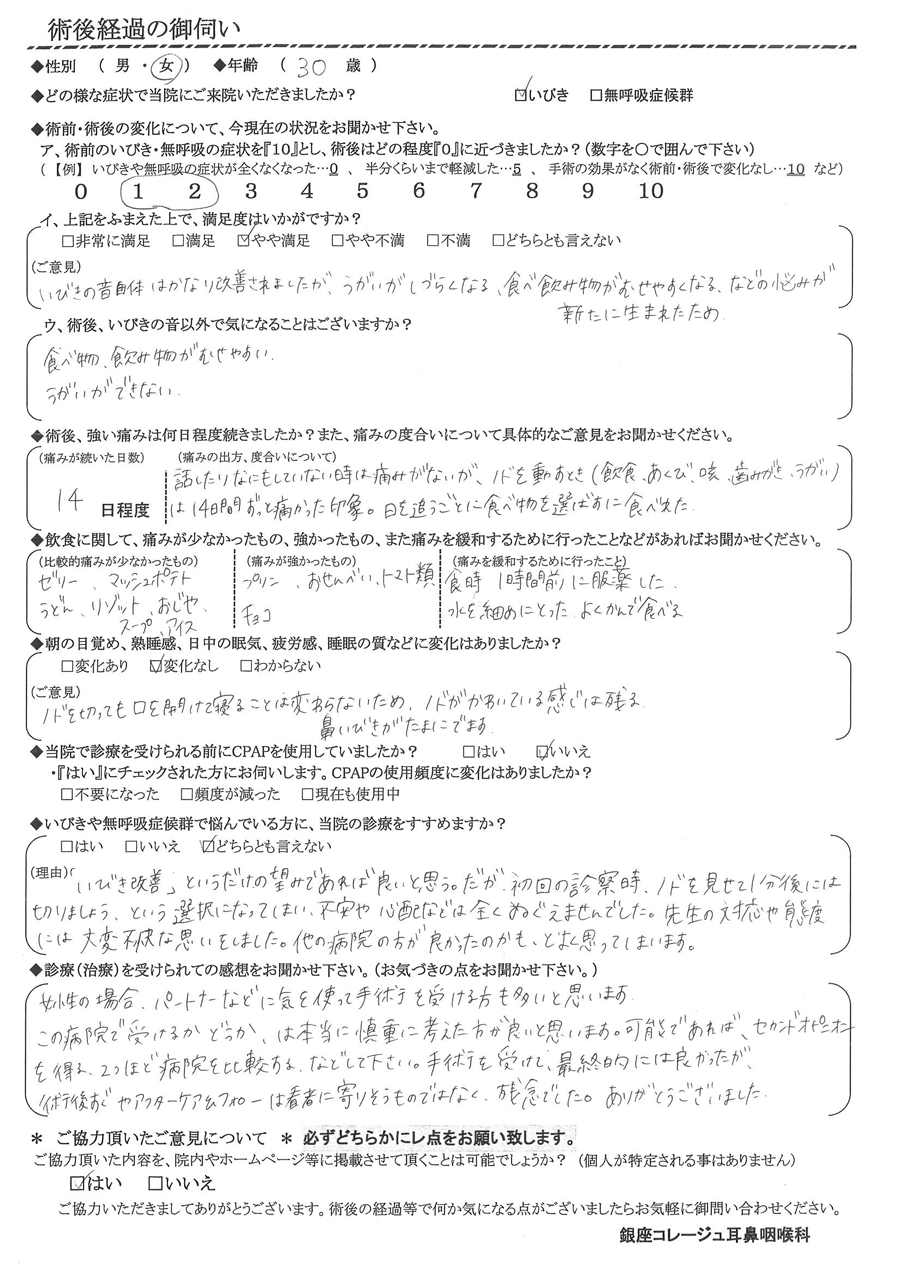 術後経過の御伺い
◆性別 ( 男 ・ 女 ) ◆年齢 ( 30 歳 )
◆どの様な症状で当院にご来院いただきましたか? ☑いびき □無呼吸症候群
◆術前・術後の変化について、今現在の状況をお聞かせ下さい。
ア、術前のいびき・無呼吸の症状を『10』とし、術後はどの程度『0』に近づきましたか?(数字を○で囲んで下さい)
(【例】いびきや無呼吸の症状が全くなくなった…0 、 半分くらいまで軽減した…5 、 手術の効果がなく術前・術後で変化なし…10 など)
0 1 2 3 4 5 6 7 8 9 10
イ、上記をふまえた上で、満足度はいかがですか?
□非常に満足 □満足 ☑やや満足 □やや不満 □不満 □どちらとも言えない
(ご意見)
いびきの音自体はかなり改善されましたが、うがいがしづらくなる、食べ飲み物がむせやすくなる、などの悩みが
新たに生まれたため
ウ、術後、いびきの音以外で気になることはございますか?
食べ物、飲み物がむせやすい.
うがいができない.
◆術後、強い痛みは何日程度続きましたか?また、痛みの度合いについて具体的なご意見をお聞かせください。
(痛みが続いた日数) (痛みの出方、度合いについて)
話したりなにもしていない時は痛みがないが、ノドを動すとき(飲食、あくび、咳、歯みがき、うがい)
14 日程度 は14日間ずっと痛かった印象。日を追うごとに食べ物を選ばずに食べれた.
◆飲食に関して、痛みが少なかったもの、強かったもの、また痛みを緩和するために行ったことなどがあればお聞かせください。
(比較的痛みが少なかったもの) (痛みが強かったもの) (痛みを緩和するために行ったこと)
ゼリー、マッシュポテト プリン、おせんべい、トマト類 食時 1時間前に服薬した.
うどん、リゾット、おじや、 チョコ 水を細めにとった. よくかんで食べる
スープ、アイス
◆朝の目覚め、熟睡感、日中の眠気、疲労感、睡眠の質などに変化はありましたか?
□変化あり ☑変化なし □わからない
(ご意見)
ノドを切っても口を開けて寝ることは変わらないため、ノドがかわいている感じは残る.
鼻いびきがたまにでます.
◆当院で診療を受けられる前にCPAPを使用していましたか? □はい ☑いいえ
・『はい』にチェックされた方にお伺いします。CPAPの使用頻度に変化はありましたか?
□不要になった □頻度が減った □現在も使用中
◆いびきや無呼吸症候群で悩んでいる方に、当院の診療をすすめますか?
□はい □いいえ ☑どちらとも言えない
(理由)「いびき改善」というだけの望みであれば良いと思う。だが、初回の診察時、ノドを見せて1分後には
切りましょう、という選択になってしまい、不安や心配などは全くぬぐえませんでした。先生の対応や態度
には大変不快な思いをしました。他の病院の方が良かったのかも、とよく思ってしまいます。
◆診療(治療)を受けられての感想をお聞かせ下さい。(お気づきの点をお聞かせ下さい。)
女性の場合、パートナーなどに気を使って手術を受ける方も多いと思います.
この病院で受けるかどうか、は本当に慎重に考えた方が良いと思います。可能であれば、セカンドオピニオン
を得る、2つほど病院を比較する、などして下さい。手術を受けて、最終的には良かったが、
術後やアフターケアやフォローは患者に寄りそうものではなく、残念でした。ありがとうございました.
＊ ご協力頂いたご意見について ＊ 必ずどちらかにレ点をお願い致します。
ご協力頂いた内容を、院内やホームページ等に掲載させて頂くことは可能でしょうか? (個人が特定される事はありません)
☑はい □いいえ
ご協力いただきましてありがとうございます。術後の経過等で何か気になる点がございましたらお気軽に御問い合わせください。
銀座コレージュ耳鼻咽喉科